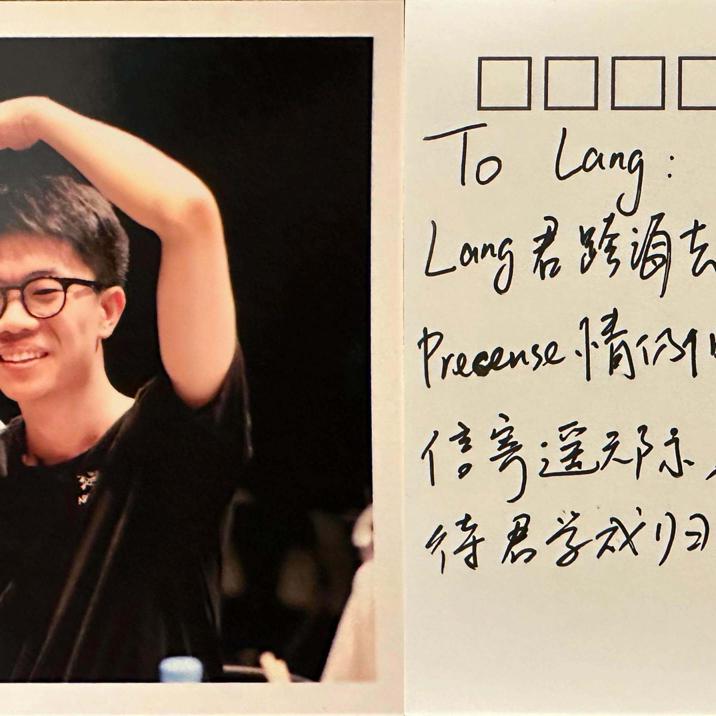 To Lang:
Lang君跨海去
Precense.情仍
信寄遥天际
待君学成归